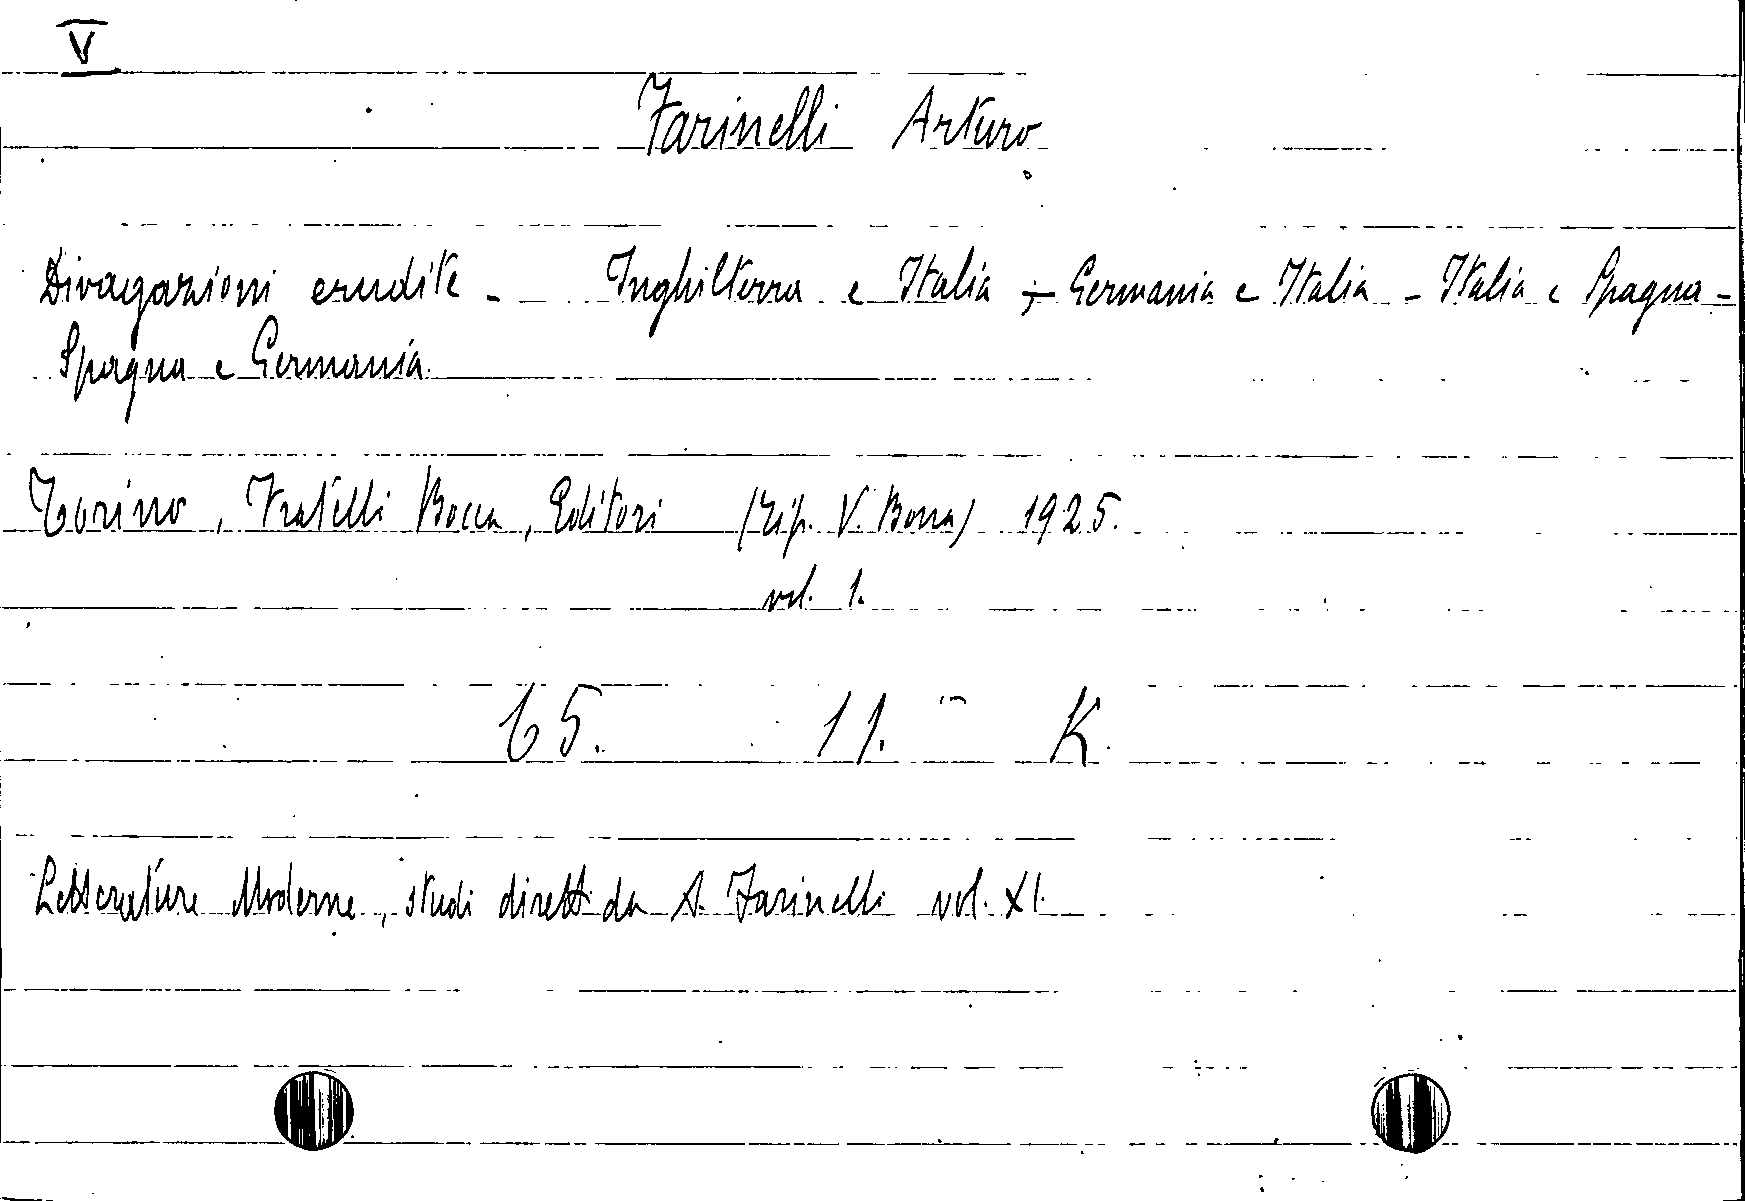 V
Farinelli Arturo
Divagazioni erudite - Inghilterra e Italia - Germania e Italia - Italia e Spagna -
Spagna e Germania
Torino, Fratelli Bocca, Editori (tip. V. Bona) 1925.
vol. 1.
65. 11. K.
Letterature Moderne, studi diretti da A. Farinelli vol. XI.